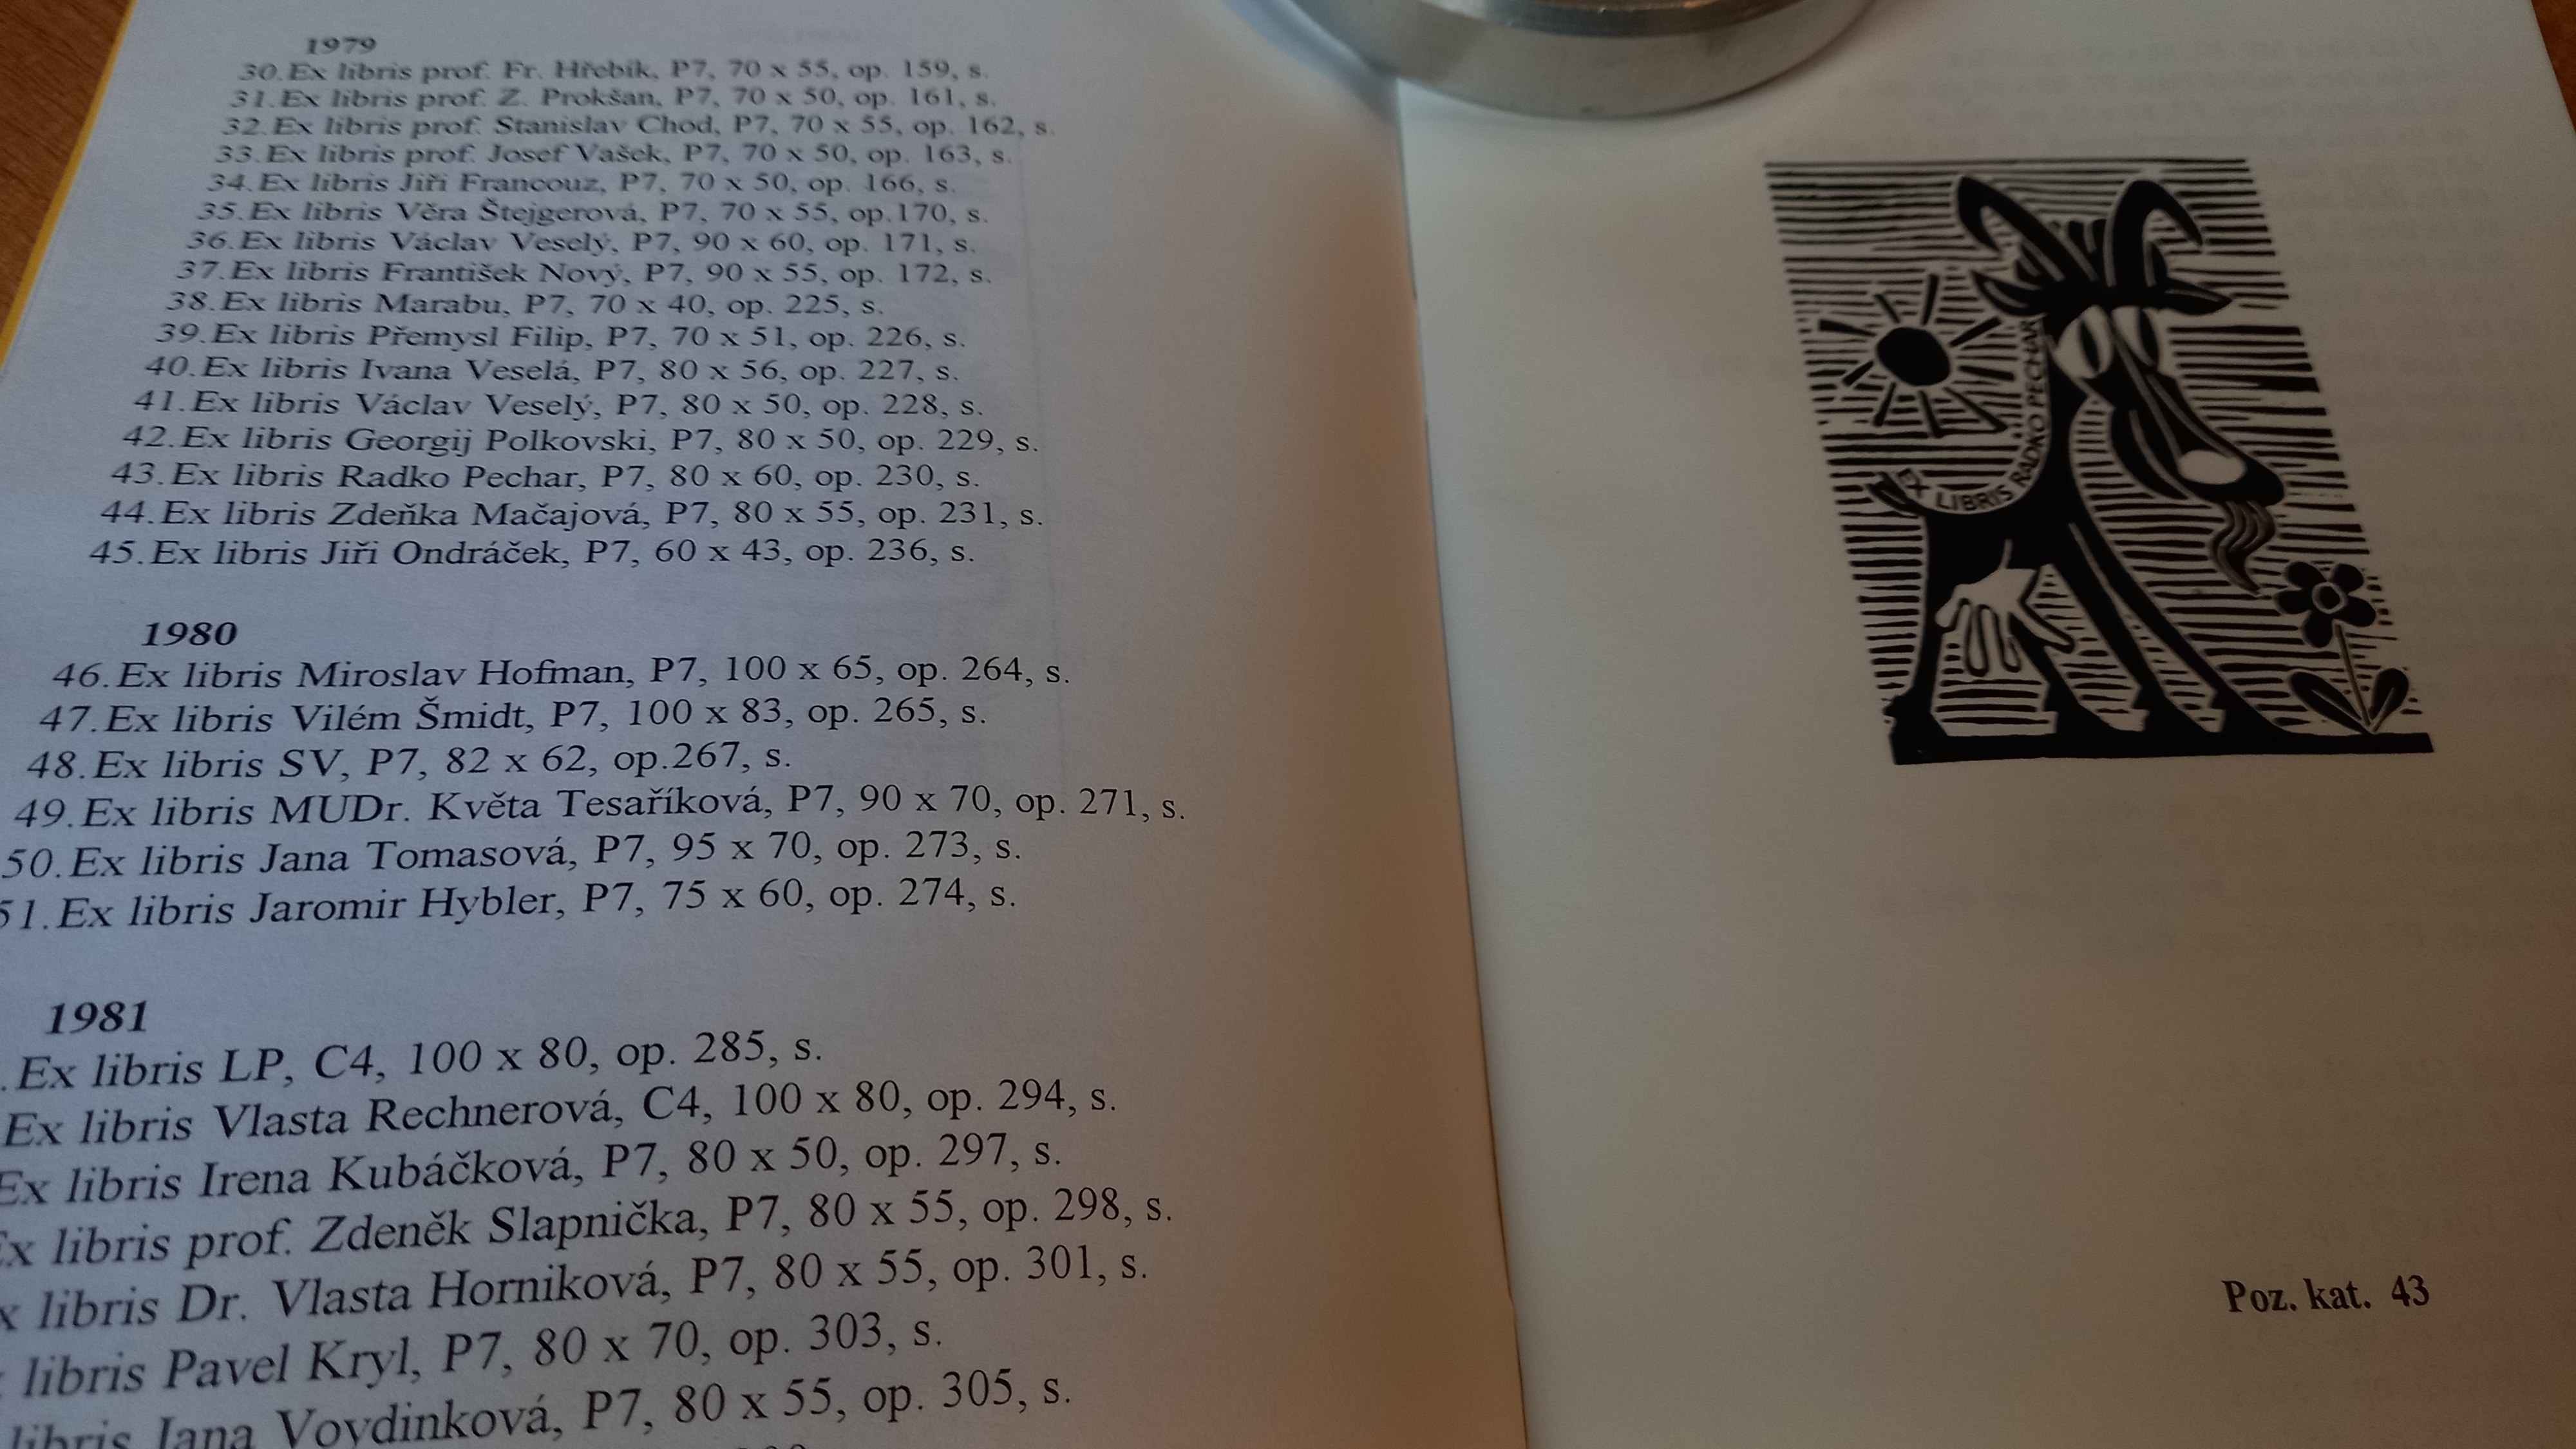 1979
30. Ex libris prof. Fr. Hřebík, P7, 70 x 55, op. 159, s.
31. Ex libris prof. Z. Prokšan, P7, 70 x 50, op. 161, s.
32. Ex libris prof. Stanislav Chod, P7, 70 x 55, op. 162, s.
33. Ex libris prof. Josef Vašek, P7, 70 x 50, op. 163, s.
34. Ex libris Jiři Francouz, P7, 70 x 50, op. 166, s.
35. Ex libris Věra Štejgerová, P7, 70 x 55, op.170, s.
36. Ex libris Václav Veselý, P7, 90 x 60, op. 171, s.
37. Ex libris František Nový, P7, 90 x 55, op. 172, s.
38. Ex libris Marabu, P7, 70 x 40, op. 225, s.
39. Ex libris Přemysl Filip, P7, 70 x 51, op. 226, s.
40. Ex libris Ivana Veselá, P7, 80 x 56, op. 227, s.
41. Ex libris Václav Veselý, P7, 80 x 50, op. 228, s.
42. Ex libris Georgij Polkovski, P7, 80 x 50, op. 229, s.
43. Ex libris Radko Pechar, P7, 80 x 60, op. 230, s.
44. Ex libris Zdeňka Mačajová, P7, 80 x 55, op. 231, s.
45. Ex libris Jiři Ondráček, P7, 60 x 43, op. 236, s.
1980
46. Ex libris Miroslav Hofman, P7, 100 x 65, op. 264, s.
47. Ex libris Vilém Šmidt, P7, 100 x 83, op. 265, s.
48. Ex libris SV, P7, 82 x 62, op.267, s.
49. Ex libris MUDr. Květa Tesaříková, P7, 90 x 70, op. 271, s.
50. Ex libris Jana Tomasová, P7, 95 x 70, op. 273, s.
51. Ex libris Jaromir Hybler, P7, 75 x 60, op. 274, s.
1981
. Ex libris LP, C4, 100 x 80, op. 285, s.
Ex libris Vlasta Rechnerová, C4, 100 x 80, op. 294, s.
Ex libris Irena Kubáčková, P7, 80 x 50, op. 297, s.
Ex libris prof. Zdeněk Slapnička, P7, 80 x 55, op. 298, s.
x libris Dr. Vlasta Horniková, P7, 80 x 55, op. 301, s.
libris Pavel Kryl, P7, 80 x 70, op. 303, s.
libris Jana Voydinková, P7, 80 x 55, op. 305, s.
EX LIBRIS RADKO PECHAR
Poz. kat. 43